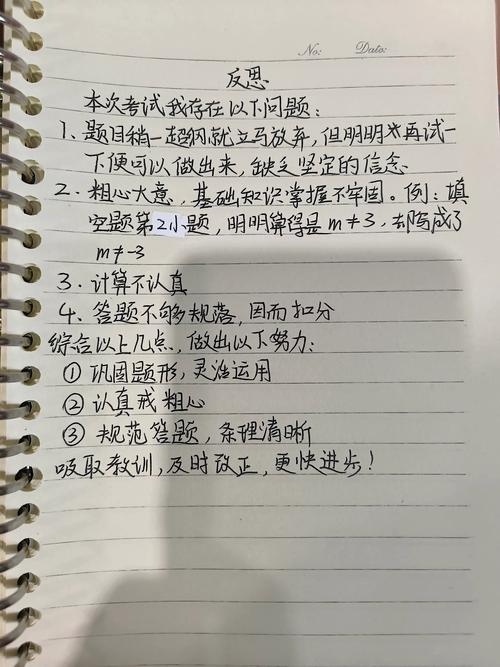 No:
Date:
反思
本次考试我存在以下问题：
1、题目稍一超纲就立马放弃，但明明再试一
下便可以做出来，缺乏坚定的信念
2、粗心大意，基础知识掌握不牢固。例：填
空题第2小题，明明算得是m≠3，却写成了
m≠-3
3、计算不认真
4、答题不够规落，因而扣分
综合以上几点，做出以下努力：
①巩固题形，灵活运用
②认真戒粗心
③规范答题，条理清晰
吸取教训，及时改正，更快进步！